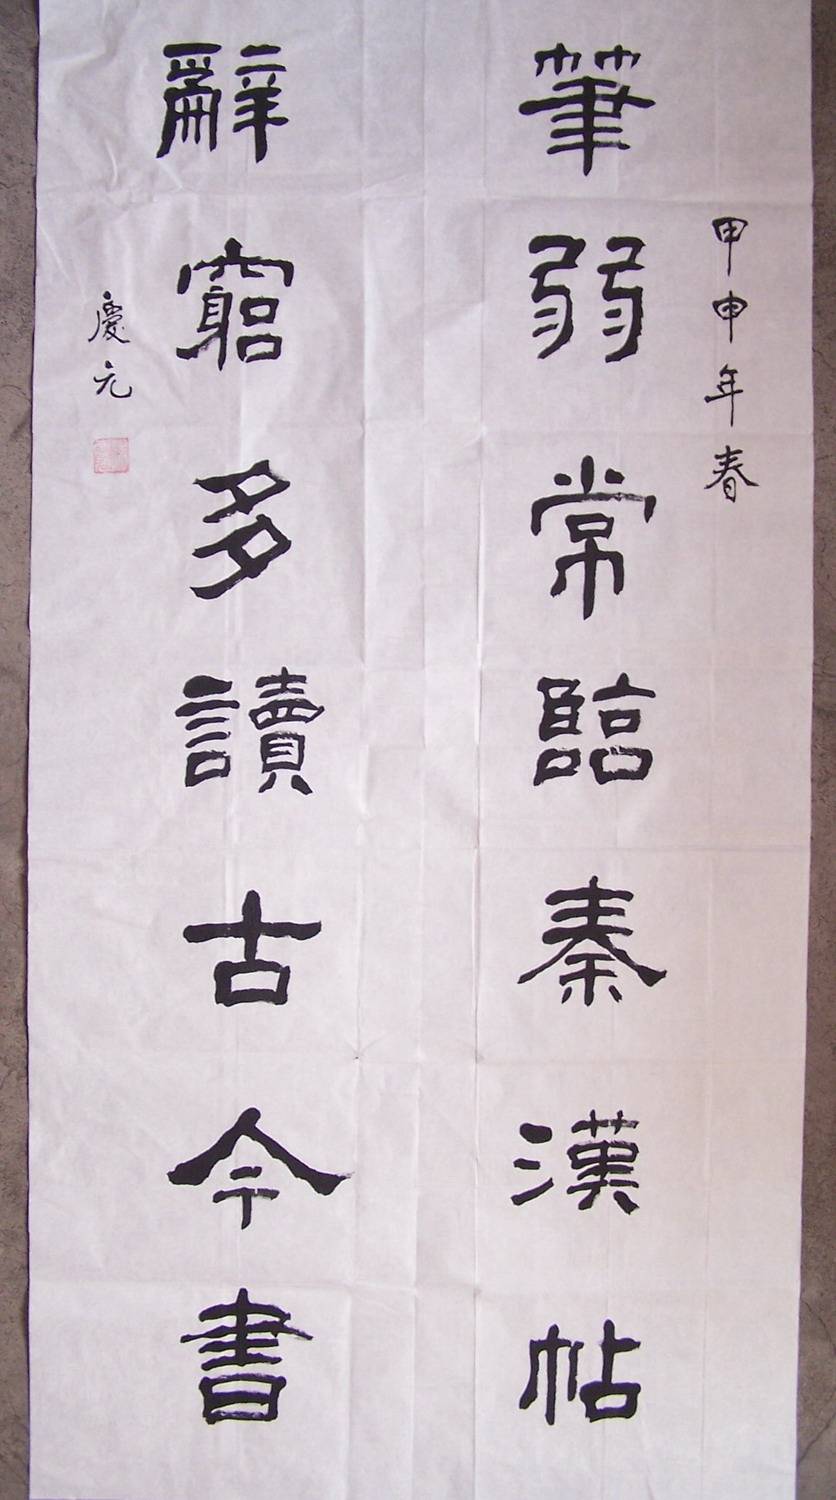 甲申年春
筆弱常臨秦漢帖
辭窮多讀古今書
慶元